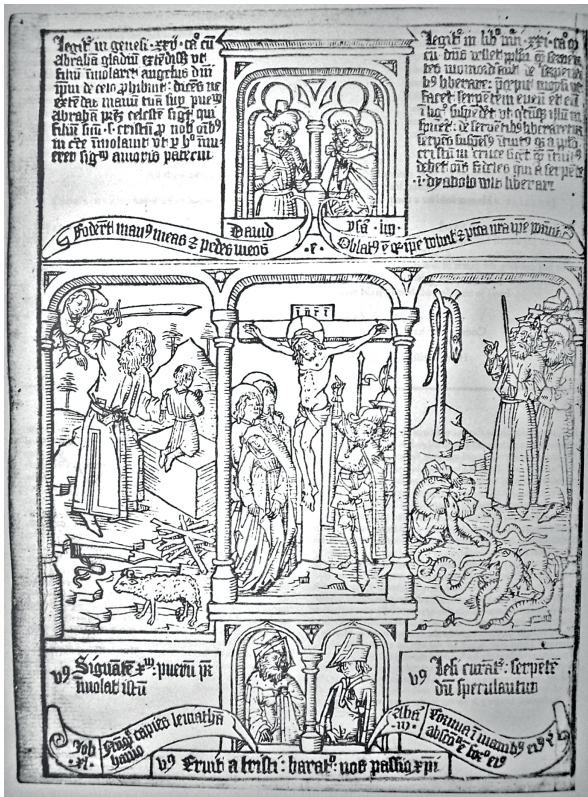 Legit' in genesi ·xxij· ca° cū
Abraham gladiū extēdiss̄ vt
filiū īmolaret angelus dn̄i
ip̄m de celo ꝓhibuit dicēs ne
extēdas manū tuā sup pueꝝ
Abraham celestē sigt̄ qui
filiū suū ·s· cristū ꝓ nob' oīb9
in īmolauit vt ꝑ h°
amoris paterni
Legit' in lib° ·xxi· ca° ꝙ
cū dn̄s vellet
tes momorderāt de serpenti
b9 liberare ꝑcepit moysi vt
faceret serpentem eneū et eū
ī lig° suspēdet vt illū in
spiceret de serpentib9 liberaretur
serpens suspens9 ītuit9 a
cristū in cruce sigt̄ quē
debet oīs fidelis qui a serpēte
·i· dyabolo vult liberari
Foderūt man9 meas ⁊ pedes meos
David
·e·
ysa' ·liij·
Oblat9 ē qꝛ ip̄e voluit ⁊ pctā nr̄a ip̄e portauit
i n r i
v9 Signātē xp̄m puerū pr̄
īmolat istū
v9 Lesi curāt' serpētē
dū speculantur
Job
·xl·
capies leuiathā
hamo
Aba'
·iij·
Cornua ī manib9 ei9 ibi
abscōd' ē fort° ei9
v9 Eruit a tristi barat° nos passio xp̄i